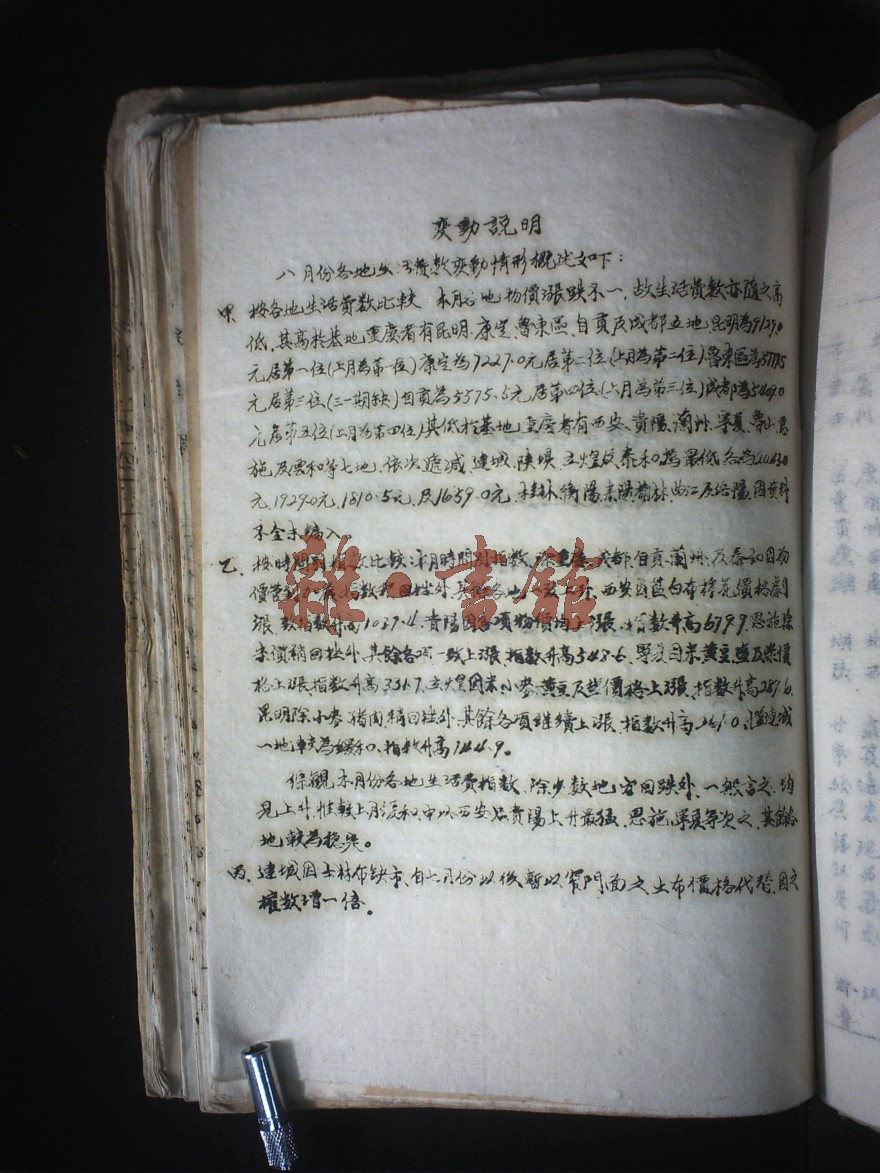 變動說明
八月份各地生活費數變動情形概述如下：
甲、按各地生活費數比較 本月各地物價漲跌不一，故生活費數亦隨之高
低，其高於基地重慶者有昆明、康定、魯東區、自貢及成都五地，昆明為9129.0
元居第一位(上月為第一位)康定為7227.0元居第二位(上月為第二位)魯東區為
元居第三位(三一期缺)自貢為5575.5元居第四位(上月為第三位)成都為5409.0
元居第五位(上月為第四位)其低於基地重慶者有西安、貴陽、蘭州、寧夏、魯
施及雲和等七地，依次遞減，連城、陝埧、立煌及泰和為最低各為
元，1929.0元，1810.5元，及1659.0元，桂林、衡陽、耒陽、曲江及洛陽，因資料
不全未編入。
乙、按時間別指數比較：本月時間別指數，除重慶、成都、自貢、蘭州、及泰和因物
價管制加嚴指數稍回挫外，其餘各地一致上升，西安因藍白布棉花價格劇
漲，致指數升高1037.4，貴陽因各項物價均上漲，指數升高679.9，恩施除
米價稍回挫外，其餘各項一致上漲，指數升高343.6，寧夏因米黃豆鹽及柴價
格上漲指數升高331.7，立煌因米、小麥、黃豆及鹽價格上漲，指數升高289.6，
昆明除小麥、豬肉、稍回挫外，其餘各項繼續上漲，指數升高261.0，僅連城
一地較為緩和，指數升高144.9。
綜觀本月份各地生活費指數，除少數地方回跌外，一般言之，均
見上升，惟較上月緩和，中以西安貴陽上升最猛，恩施，寧夏等次之，其餘各
地較為穩定。
丙、連城因士林布缺市，自六月份以後暫以窄門面之土布價格代替，因之
權數增一倍。
雜·書館